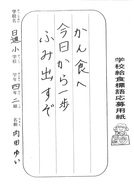 学校給食標語応募用紙
かん食へ
今日から一歩
ふみ出すぞ
学校名 日進小学校 学年 四年 二組 名前 内田ゆい